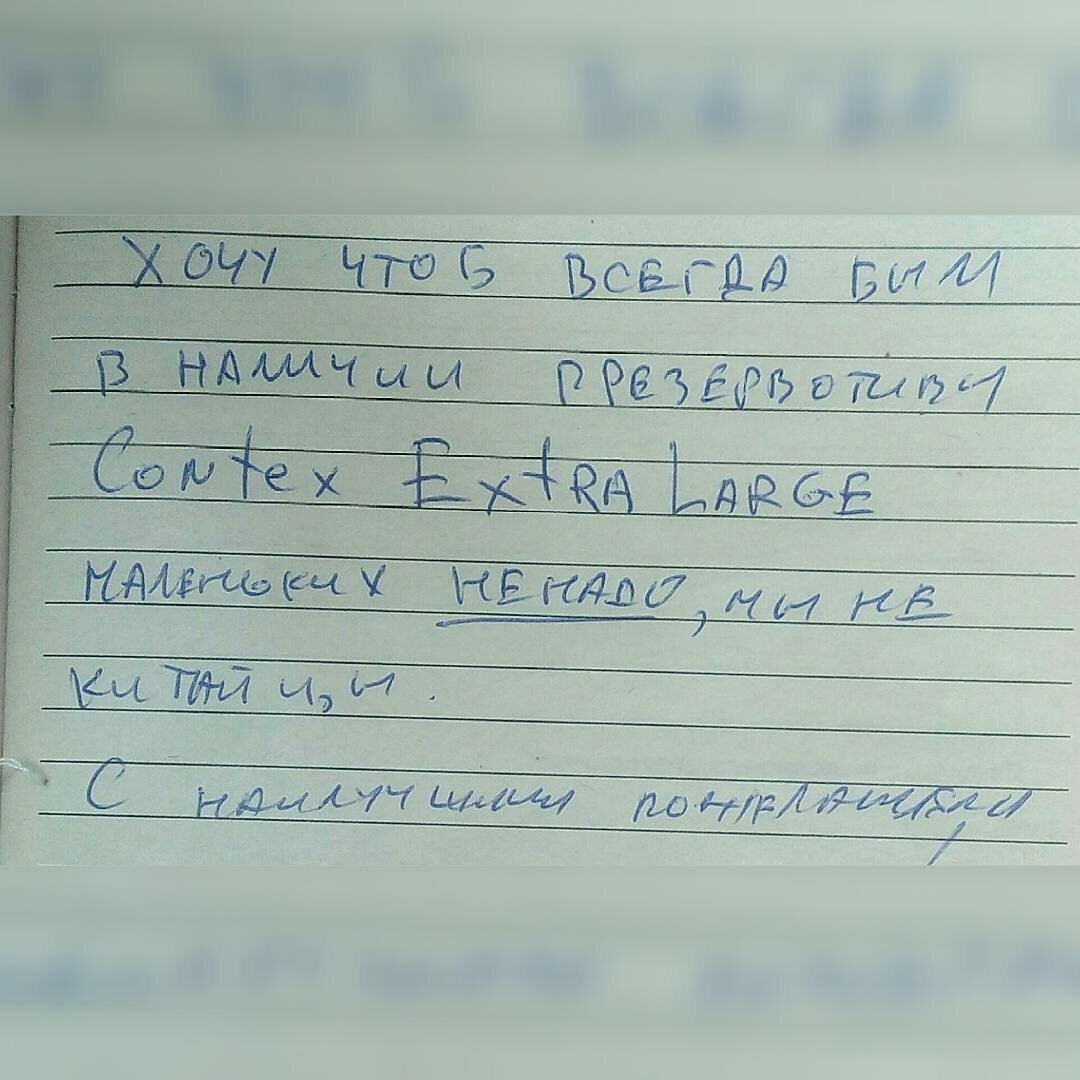 ХОЧУ ЧТОБ ВСЕГДА БИЛИ
В НАЛИЧИИ ПРЕЗЕРВОТИВЫ
Contex ExtRA LARGE
МАЛЕНЬКИХ НЕНАДО, МЫ НЕ
КИТАЙЦЫ.
С НАИЛУЧШИМИ ПОЖЕЛАНИЯМИ